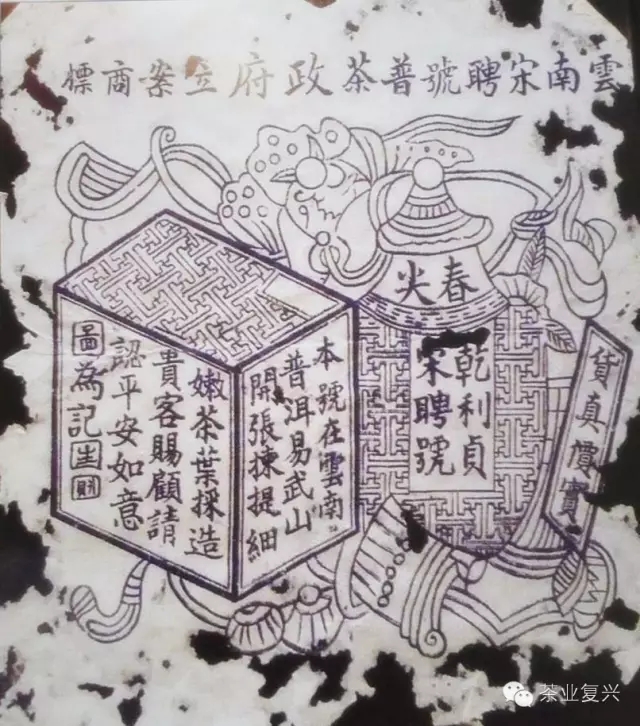 雲南宋聘號普茶政府立案商標
春尖
乾利貞
宋聘號
貨真價實
本號在雲南
普洱易武山
開張揀提細
嫩茶葉採造
貴客賜顧請
認平安如意
圖為記生財
茶业复兴